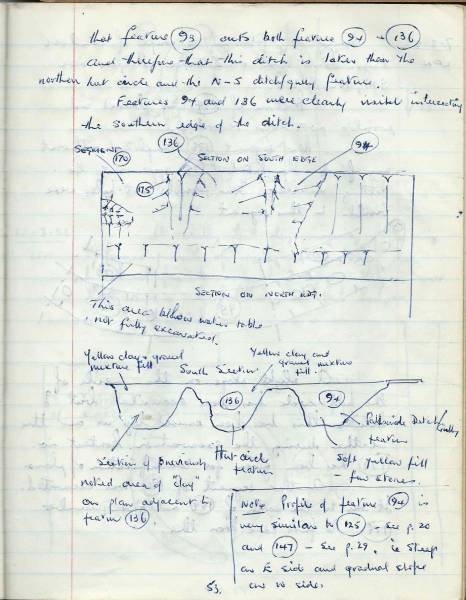 that feature 93 cuts both feature 94 + 136
and therefore that this ditch is later than the
northern hut circle and the N-S ditch/gully feature.
Features 94 and 136 were clearly visible intersecting
the southern edge of the ditch.
SEGMENT 170
136
SECTION ON SOUTH EDGE
94
175
SECTION ON NORTH EDGE.
This area below water table
, not fully excavated.
Yellow clay + gravel
mixture fill
South Section
Yellow clay and
gravel mixture
fill.
136
94
Palisade Ditch/Gully
feature
Section of previously
noted area of "clay"
on plan adjacent to
feature 136.
Hut circle
feature
Soft yellow fill
- few stones.
NOTE Profile of feature 94 is
very similar to 125 - see p.20
and 147 - see p.29, ie steep
on E side and gradual slope
on W side.
53.